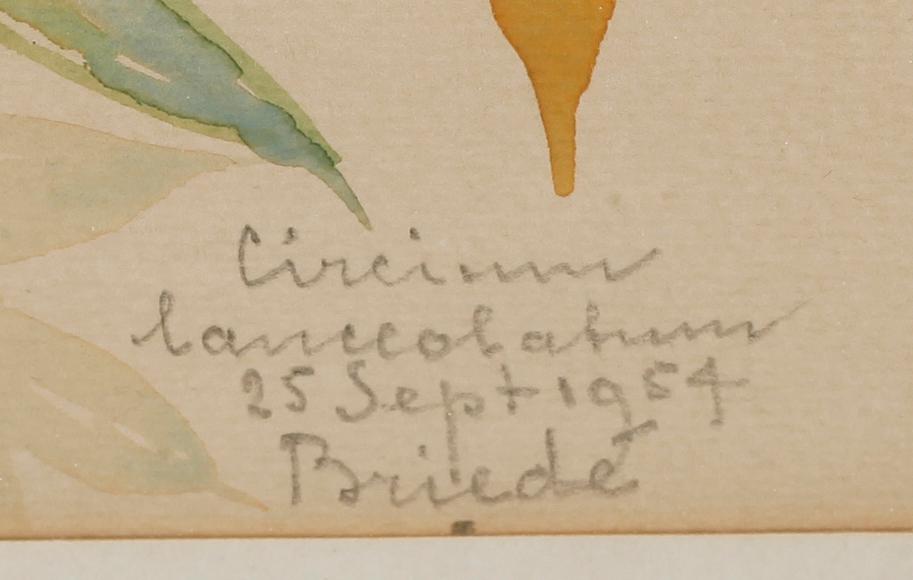 Circium
lanceolatum
25 Sept 1954
Briedé